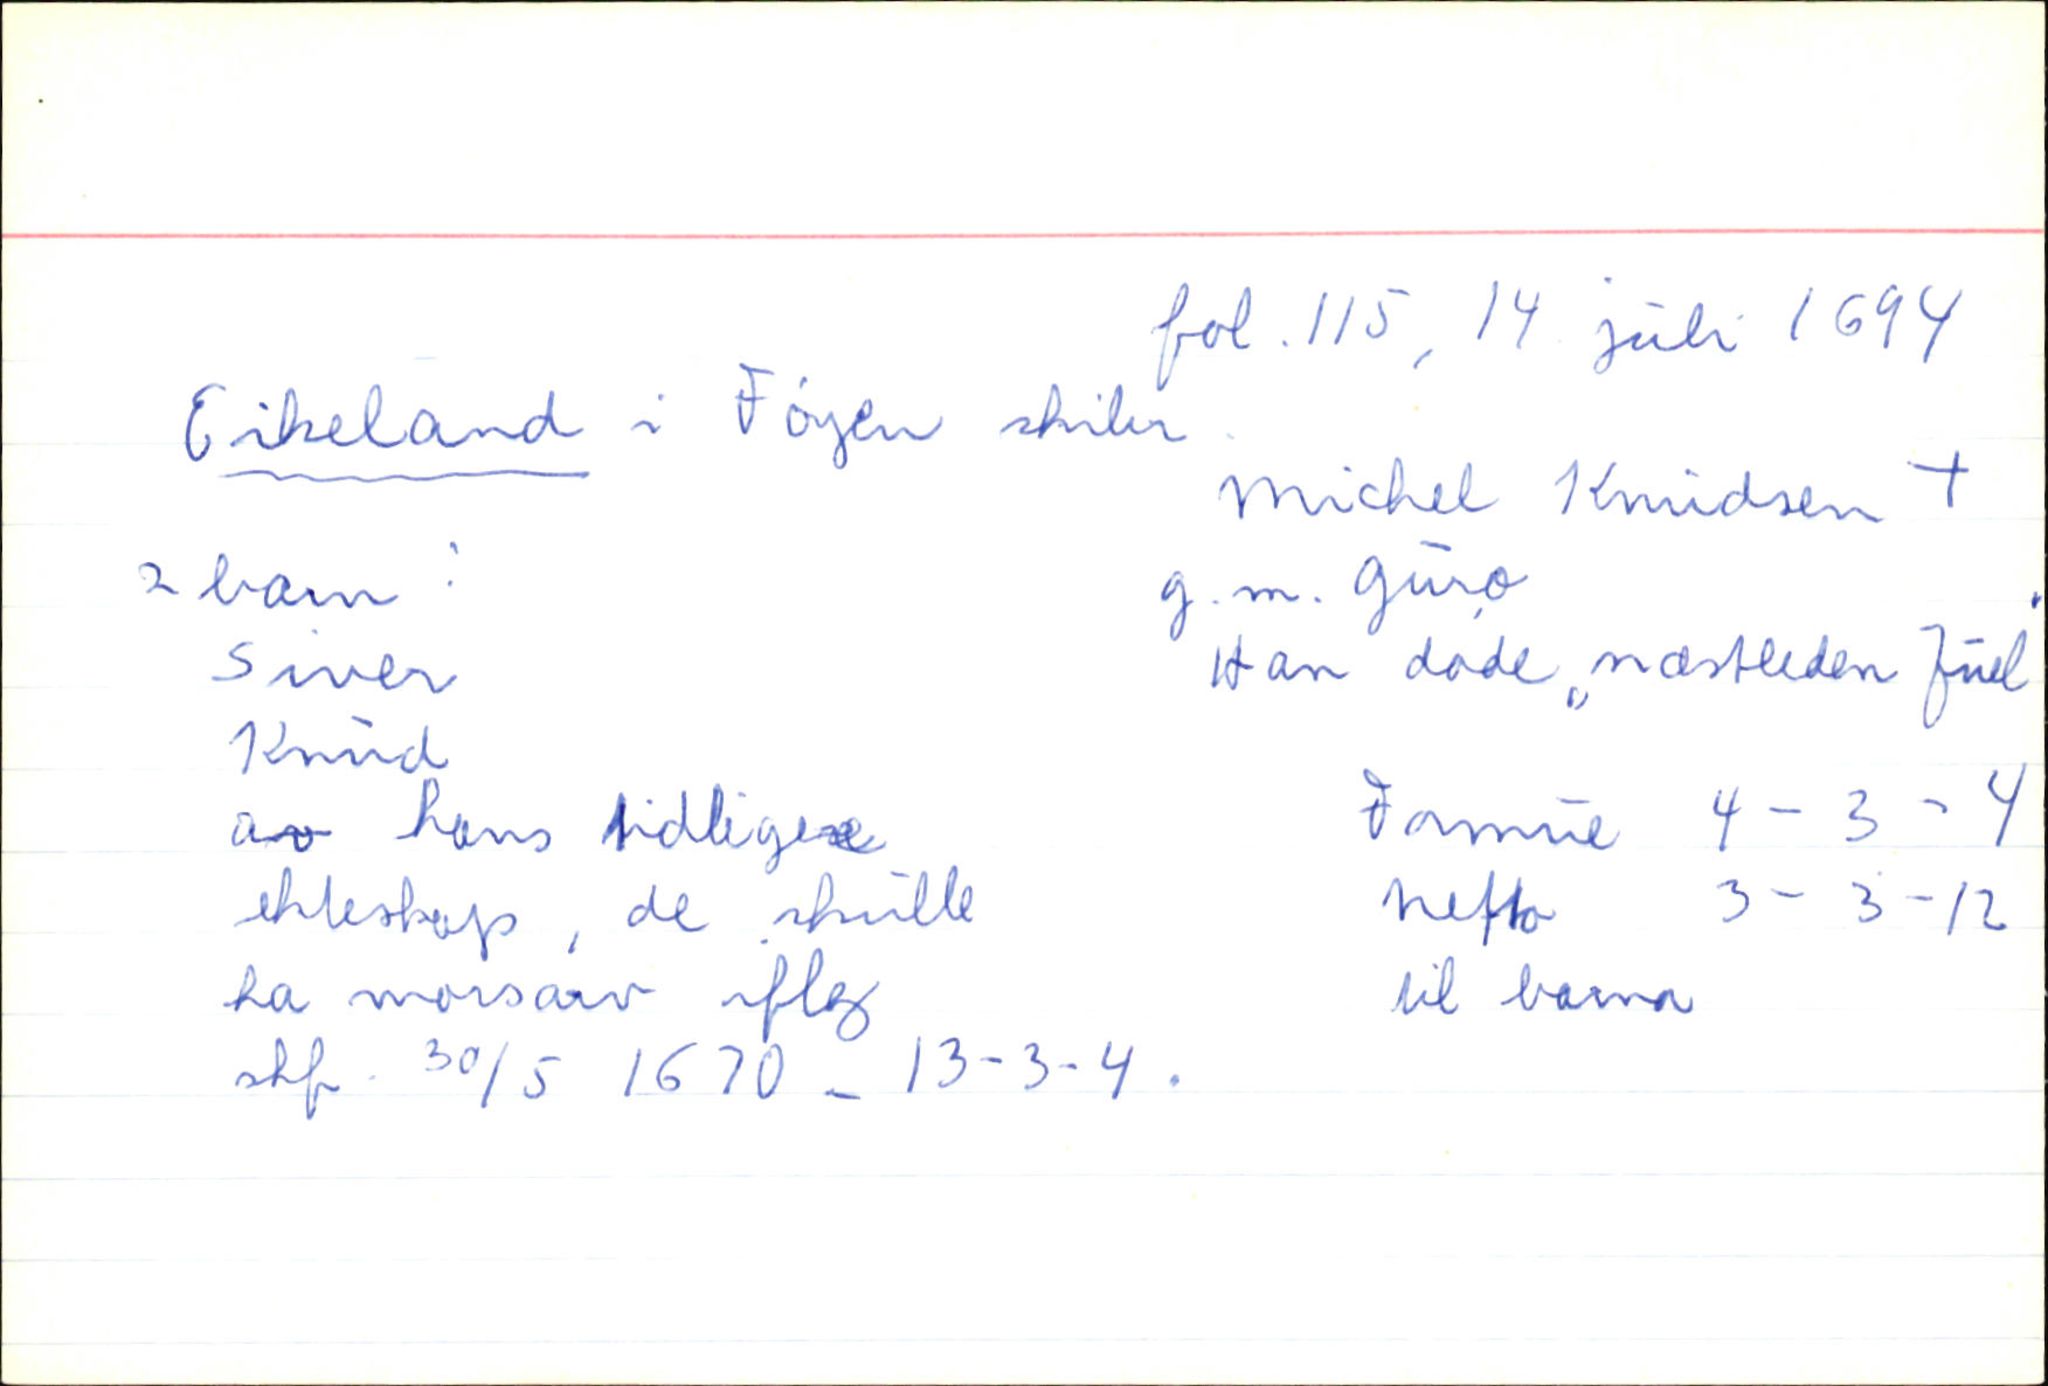 fol. 115, 14 juli 1694
Eikeland i Føyen skiler
Michel Knudsen +
2 barn : g. m. Guro
Siver Han døde „næstleden Juel"
Knud
av hans tidligere Formue 4 - 3 - 4
ekteskap, de skulle Netto 3 - 3 - 12
ha morsarv iflg til barna
skf. 30/5 1670 - 13-3-4.